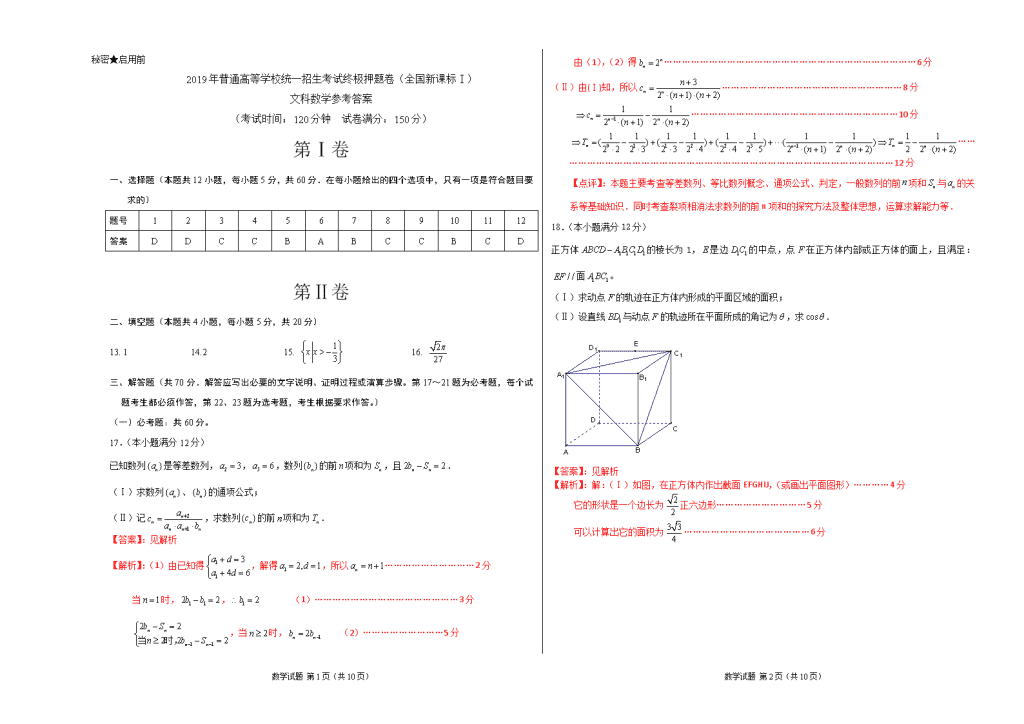 秘密★启用前
2019年普通高等学校统一招生考试终极押题卷（全国新课标Ⅰ）
文科数学参考答案
（考试时间：120分钟 试卷满分：150分）
第Ⅰ卷
一、选择题（本题共12小题，每小题5分，共60分．在每小题给出的四个选项中，只有一项是符合题目要
求的）
题号 1 2 3 4 5 6 7 8 9 10 11 12
答案 D D C C B A B C C B C D
第Ⅱ卷
二、填空题（本题共4小题，每小题5分，共20分）
13. 1 14. 2 15. {x|x>-1/3} 16. √2π/27
三、解答题（共70分．解答应写出必要的文字说明、证明过程或演算步骤。第17～21题为必考题，每个试
题考生都必须作答，第22、23题为选考题，考生根据要求作答。）
（一）必考题：共60分。
17.（本小题满分12分）
已知数列(a_n)是等差数列，a_2=3，a_5=6，数列(b_n)的前n项和为S_n，且2b_n-S_n=2．
（Ⅰ）求数列(a_n)、(b_n)的通项公式；
（Ⅱ）记c_n=a_{n+2}/(a_n·a_{n+1}·b_n)，求数列(c_n)的前n项和为T_n．
【答案】：见解析
【解析】：（1）由已知得{a_1+d=3 a_1+4d=6，解得a_1=2,d=1，所以a_n=n+1…………………………2分
当n=1时，2b_1-b_1=2，∴b_1=2 （1）…………………………………………3分
{2b_n-S_n=2 当n≥2时,2b_{n-1}-S_{n-1}=2，当n≥2时，b_n=2b_{n-1} （2）………………………5分
数学试题 第1页（共10页）
由（1），（2）得b_n=2^n…………………………………………………………………………6分
（Ⅱ）由(Ⅰ)知，所以c_n=(n+3)/(2^n·(n+1)·(n+2))……………………………………………………8分
⇒c_n=1/(2^{n-1}·(n+1))-1/(2^n·(n+2))……………………………………………………………10分
⇒T_n=(1/(2^0·2)-1/(2^1·3))+(1/(2^1·3)-1/(2^2·4))+(1/(2^2·4)-1/(2^3·5))+⋯(1/(2^{n-1}·(n+1))-1/(2^n·(n+2)))⇒T_n=1/2-1/(2^n·(n+2))……
………………………………………………………………………………………………12分
【点评】：本题主要考查等差数列、等比数列概念、通项公式、判定，一般数列的前n项和S_n与a_n的关
系等基础知识．同时考查裂项相消法求数列的前n项和的探究方法及整体思想，运算求解能力等．
18.（本小题满分12分）
正方体ABCD-A_1B_1C_1D_1的棱长为1，E是边D_1C_1的中点，点F在正方体内部或正方体的面上，且满足：
EF//面A_1BC_1。
（Ⅰ）求动点F的轨迹在正方体内形成的平面区域的面积；
（Ⅱ）设直线BD_1与动点F的轨迹所在平面所成的角记为θ，求cosθ．
D1 E C1
A1 B1
D C
A B
【答案】：见解析
【解析】：解：（Ⅰ）如图，在正方体内作出截面EFGHIJ，（或画出平面图形）…………4分
它的形状是一个边长为√2/2正六边形…………………………5分
可以计算出它的面积为3√3/4……………………………………6分
数学试题 第2页（共10页）